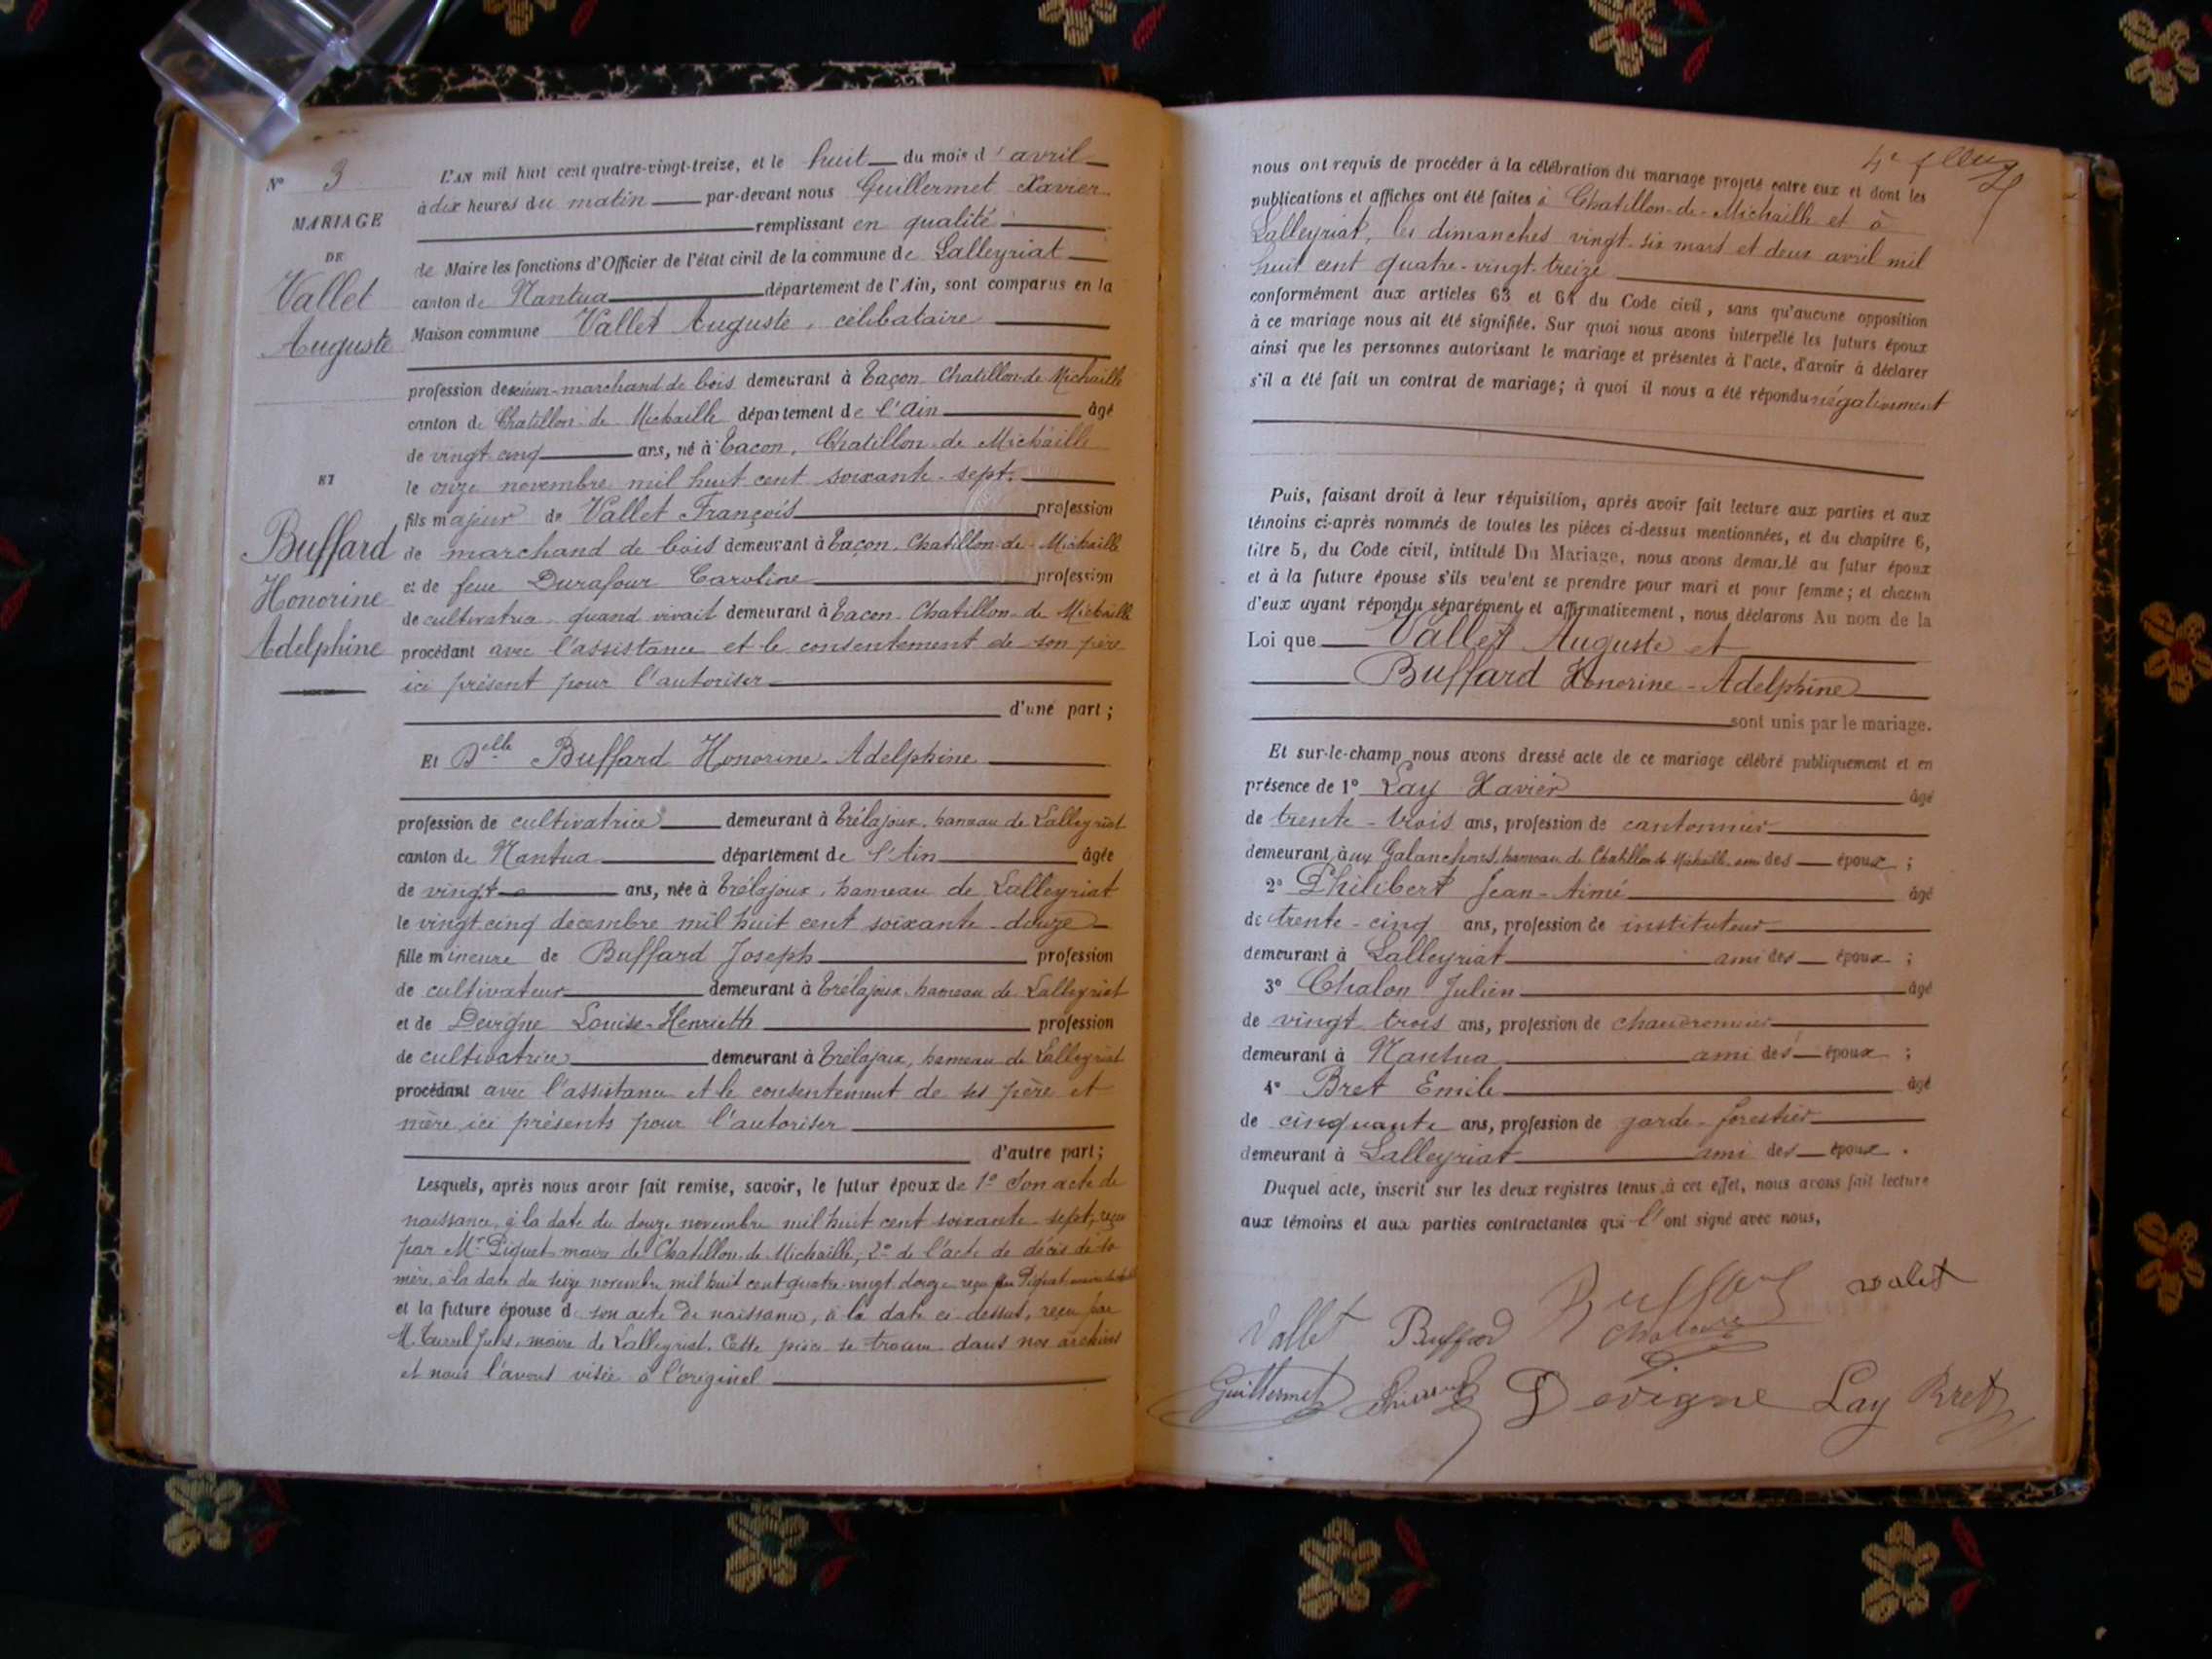 N° 3
MARIAGE
DE
Vallet
Auguste
ET
Buffard
Honorine
Adelphine
L'AN mil huit cent quatre-vingt-treize, et le huit du mois d'avril
à dix heures du matin par-devant nous Guillermet Xavier
remplissant en qualité
de Maire les fonctions d'Officier de l'état civil de la commune de Lalleyriat
canton de Nantua département de l'Ain, sont comparus en la
Maison commune Vallet Auguste, célibataire
profession de scieur-marchand de bois demeurant à Tacon Chatillon-de Michaille
canton de Chatillon-de-Michaille département de l'Ain âgé
de vingt cinq ans, né à Tacon, Chatillon-de Michaille
le onze novembre mil huit cent soixante-sept.
fils majeur de Vallet François profession
de marchand de bois demeurant à Tacon, Chatillon-de-Michaille
et de feue Durafour Caroline profession
de cultivatrice quand vivait demeurant à Tacon Chatillon-de Michaille
procédant avec l'assistance et le consentement de son père
ici présent pour l'autoriser
d'une part;
Et Delle Buffard Honorine-Adelphine
profession de cultivatrice demeurant à Trélajoux, hameau de Lalleyriat
canton de Nantua département de l'Ain âgée
de vingt ans, née à Trélajoux, hameau de Lalleyriat
le vingt cinq décembre mil huit cent soixante-douze
fille mineure de Buffard Joseph profession
de cultivateur demeurant à Trélajoux, hameau de Lalleyriat
et de Devigne Louise-Henriette profession
de cultivatrice demeurant à Trélajoux, hameau de Lalleyriat
procédant avec l'assistance et le consentement de ses père et
mère ici présents pour l'autoriser
d'autre part;
Lesquels, après nous avoir fait remise, savoir, le futur époux de 1° Son acte de
naissance, à la date du douze novembre mil huit cent soixante-sept, reçu
par Mr Piquet maire de Chatillon-de-Michaille, 2° de l'acte de décès de sa
mère, à la date du seize novembre mil huit cent quatre-vingt-douze reçu par Piquet maire
et la future épouse de son acte de naissance, à la date ci-dessus, reçu par
M. Jules, maire de Lalleyriat. Cette pièce se trouve dans nos archives
et nous l'avons visée à l'original
nous ont requis de procéder à la célébration du mariage projeté entre eux et dont les
publications et affiches ont été faites à Chatillon-de-Michaille et à
Lalleyriat, les dimanches vingt-six mars et deux avril mil
huit cent quatre-vingt-treize
conformément aux articles 63 et 64 du Code civil, sans qu'aucune opposition
à ce mariage nous ait été signifiée. Sur quoi nous avons interpellé les futurs époux
ainsi que les personnes autorisant le mariage et présentes à l'acte, d'avoir à déclarer
s'il a été fait un contrat de mariage; à quoi il nous a été répondu négativement
Puis, faisant droit à leur réquisition, après avoir fait lecture aux parties et aux
témoins ci-après nommés de toutes les pièces ci-dessus mentionnées, et du chapitre 6,
titre 5, du Code civil, intitulé Du Mariage, nous avons demandé au futur époux
et à la future épouse s'ils veulent se prendre pour mari et pour femme; et chacun
d'eux ayant répondu séparément et affirmativement, nous déclarons Au nom de la
Loi que Vallet Auguste et
Buffard Honorine-Adelphine
sont unis par le mariage.
Et sur-le-champ nous avons dressé acte de ce mariage célébré publiquement et en
présence de 1° Lay Xavier âgé
de trente-trois ans, profession de cantonnier
demeurant aux Galanchons, hameau de Chatillon de Michaille ami des époux;
2° Philibert Jean-Aimé âgé
de trente-cinq ans, profession de instituteur
demeurant à Lalleyriat ami des époux;
3° Chalon Julien âgé
de vingt trois ans, profession de chaudronnier
demeurant à Nantua ami des époux;
4° Bret Emile âgé
de cinquante ans, profession de garde-forestier
demeurant à Lalleyriat ami des époux.
Duquel acte, inscrit sur les deux registres tenus à cet effet, nous avons fait lecture
aux témoins et aux parties contractantes qui l'ont signé avec nous,
Vallet Buffard Buffard valet
Guillermet Devigne Lay Bret